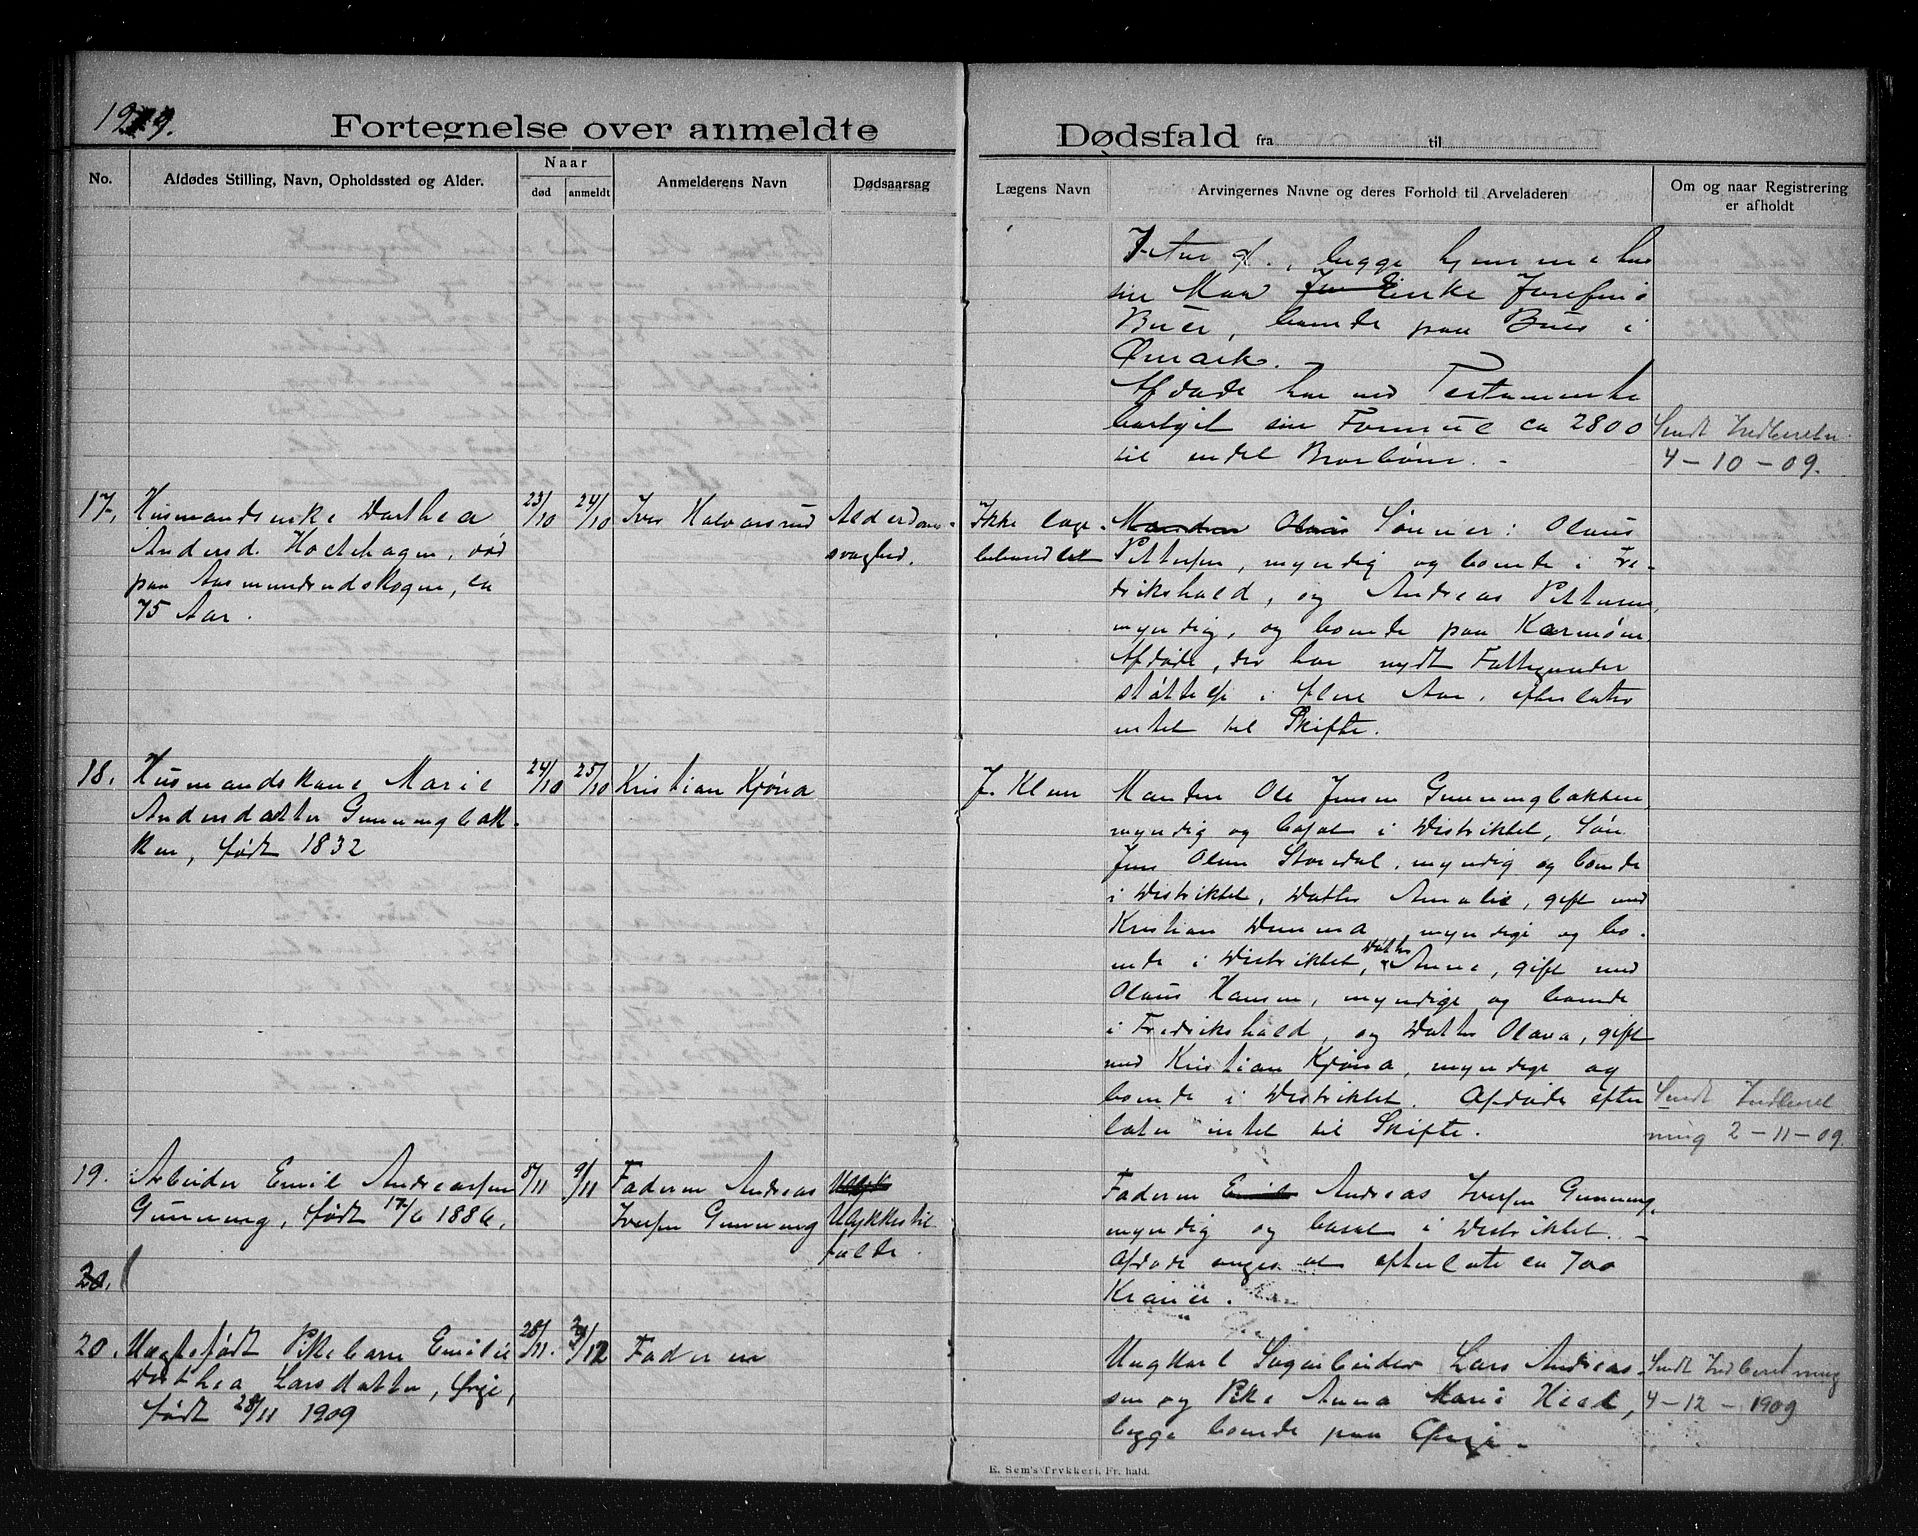 1909.
Fortegnelse over anmeldte Dødsfald fra til
No.
Afdødes Stilling, Navn, Opholdssted og Alder.
Naar
død
anmeldt
Anmelderens Navn
Dødsaarsag
Lægens Navn
Arvingernes Navne og deres Forhold til Arveladeren
Om og naar Registrering
er afholdt
begge hjemme hos
sin Mor Enke Josefine
Buer, boende paa Buer i
Ømark.
Afdøde har ved Testamente
bortgit sin Formue ca 2800
til endel Brorbørn. -
Sendt Indberetn.
4-10-09.
17.
Husmandsenke Dorthea
Andersd. Holtehagen, død
paa Aasmundrudskogen, ca
75 Aar.
23/10
24/10
Iver Halvorsrud
Alderdoms-
svaghed.
Ikke læge-
behandlet
Manden Olaus Sønner: Olaus
Pettersen, myndig og boende i Fre-
drikshald, og Andreas Pettersen,
myndig, og boende paa Karmøen.
Afdøde, der har nydt Fattigunder
støttelse i flere Aar, efterlater
intet til Skifte.
18.
Husmandskone Marie
Andersdatter Gunnengbak-
ken, født 1832
24/10
25/10
Kristian Kjøna
J. Klem
Manden Ole Jensen Gunnengbakken,
myndig og bosat i Distriktet, Søn
Jens Olsen Stordal, myndig og boende
i Distriktet, Datter Amalie, gift med
Kristian , myndige og bo-
ende i Distriktet, Datter Anne, gift med
Olaus Hansen, myndige og boende
i Fredrikshald, og Datter Olava, gift
med Kristian Kjøna, myndige og
boende i Distriktet. Afdøde efter
later intet til Skifte.
Sendt Indberet
ning 2-11-09.
19.
Arbeider Emil Andreassen
Gunneng, født 17/6 1886.
8/11
9/11
Faderen Andreas
Iversen Gunneng
Ulykkestil
fælde.
Faderen Emil Andreas Iversen Gunneng,
myndig og bosat i Distriktet. -
Afdøde anges at efterlate ca 700
Kroner.
20.
20.
Uægtefødt Pikebarn Emilie
Dorthea Larsdatter, Ørje,
født 28/11 1909
28/11.
2/12
Faderen
Ungkarl Sagarbeider Lars Andreas
sen og Pike Anna Marie Hied,
begge boende paa Ørje. -
Sendt Indberetning
4-12-1909
E. Sem's Trykkeri, Fr. hald.